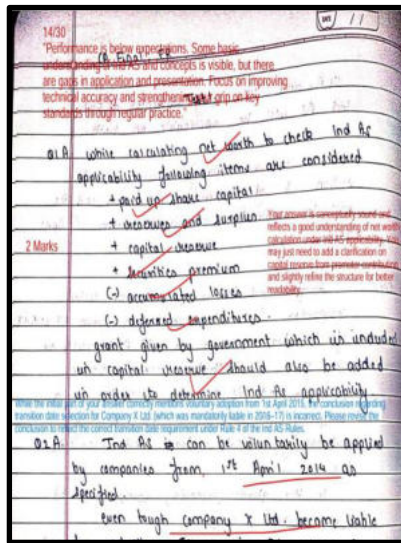 DATE 11
14/30
CA Final FR
"Performance is below expectations. Some basic
understanding of Ind AS and concepts is visible, but there
are gaps in application and presentation. Focus on improving
technical accuracy and strengthening grip on key
standards through regular practice."
Q1 A while calculating net worth to check Ind As
applicability following items are considered
+ paid up share capital
+ reserves and surplus
2 Marks
+ capital reserve
+ securities premium
(-) accumulated losses
(-) deferred expenditures.
Your answer is conceptually sound and
reflects a good understanding of net worth
calculation under Ind AS applicability. You
may just need to add a clarification on
capital reserve from promoter contribution
and slightly refine the structure for better
readability.
grant given by government which is included
in capital reserve should also be added
in order to determine Ind As applicability
While the initial part of your answer correctly mentions voluntary adoption from 1st April 2015, the conclusion regarding
transition date selection for Company X Ltd. (which was mandatorily liable in 2016–17) is incorrect. Please revise the
conclusion to reflect the correct transition date requirement under Rule 4 of the Ind AS Rules.
Q2 A. Ind As can be voluntarily be applied
by companies from 1st April 2014 as
specified.
even tough company X Ltd. become liable